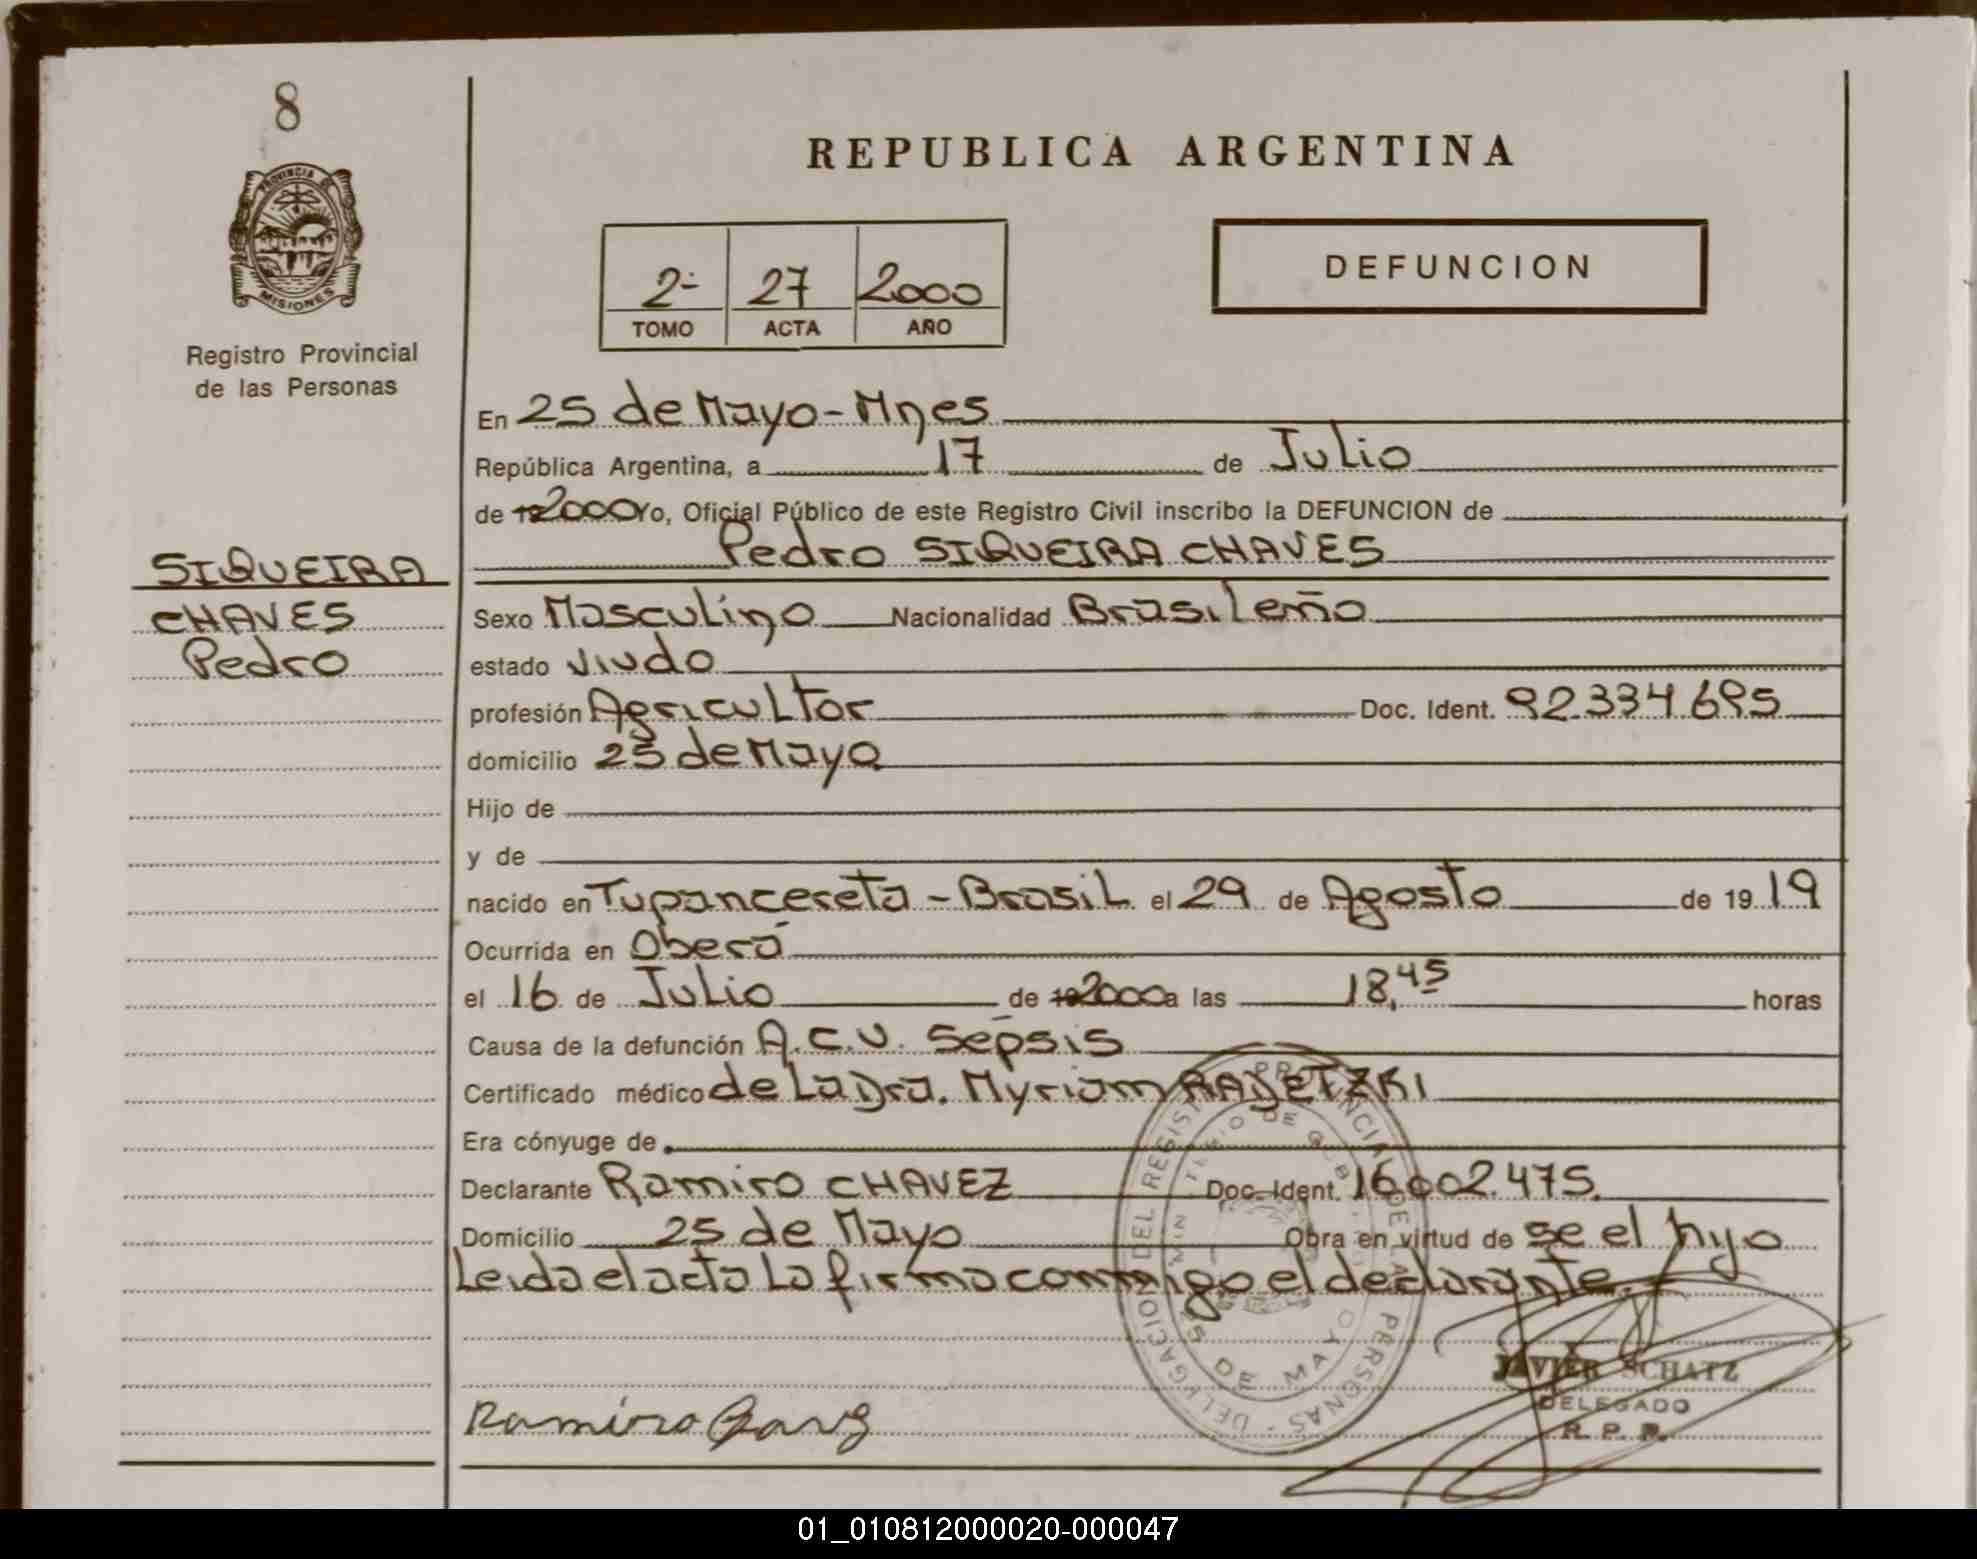 8
PROVINCIA DE
MISIONES
Registro Provincial
de las Personas
REPUBLICA ARGENTINA
2- 27 2000
TOMO ACTA AÑO
DEFUNCION
En 25 de Mayo - Mnes
República Argentina, a 17 de Julio
de 19 2000 Yo, Oficial Público de este Registro Civil inscribo la DEFUNCION de
Pedro SIQUEIRA CHAVES
SIQUEIRA
CHAVES
Pedro
Sexo Masculino Nacionalidad Brasileño
estado viudo
profesión Agricultor Doc. Ident. 92.334.695
domicilio 25 de Mayo
Hijo de
y de
nacido en Tupancereta - Brasil el 29 de Agosto de 19 19
Ocurrida en Oberá
el 16 de Julio de 19 2000 a las 18,45 horas
Causa de la defunción A.C.V. Sepsis
Certificado médico de La Dra. Myriam RADETZKI
Era cónyuge de
Declarante Ramiro CHAVEZ Doc. Ident. 16.002.475.
Domicilio 25 de Mayo Obra en virtud de se el hijo
Leida el acta La firma conmigo el declarante.
DELEGACION DEL REGISTRO PROVINCIAL DE LAS PERSONAS
MINISTERIO DE GOB
25 DE MAYO
JAVIER SCHATZ
DELEGADO
R. P. P.
Ramiro
01_010812000020-000047